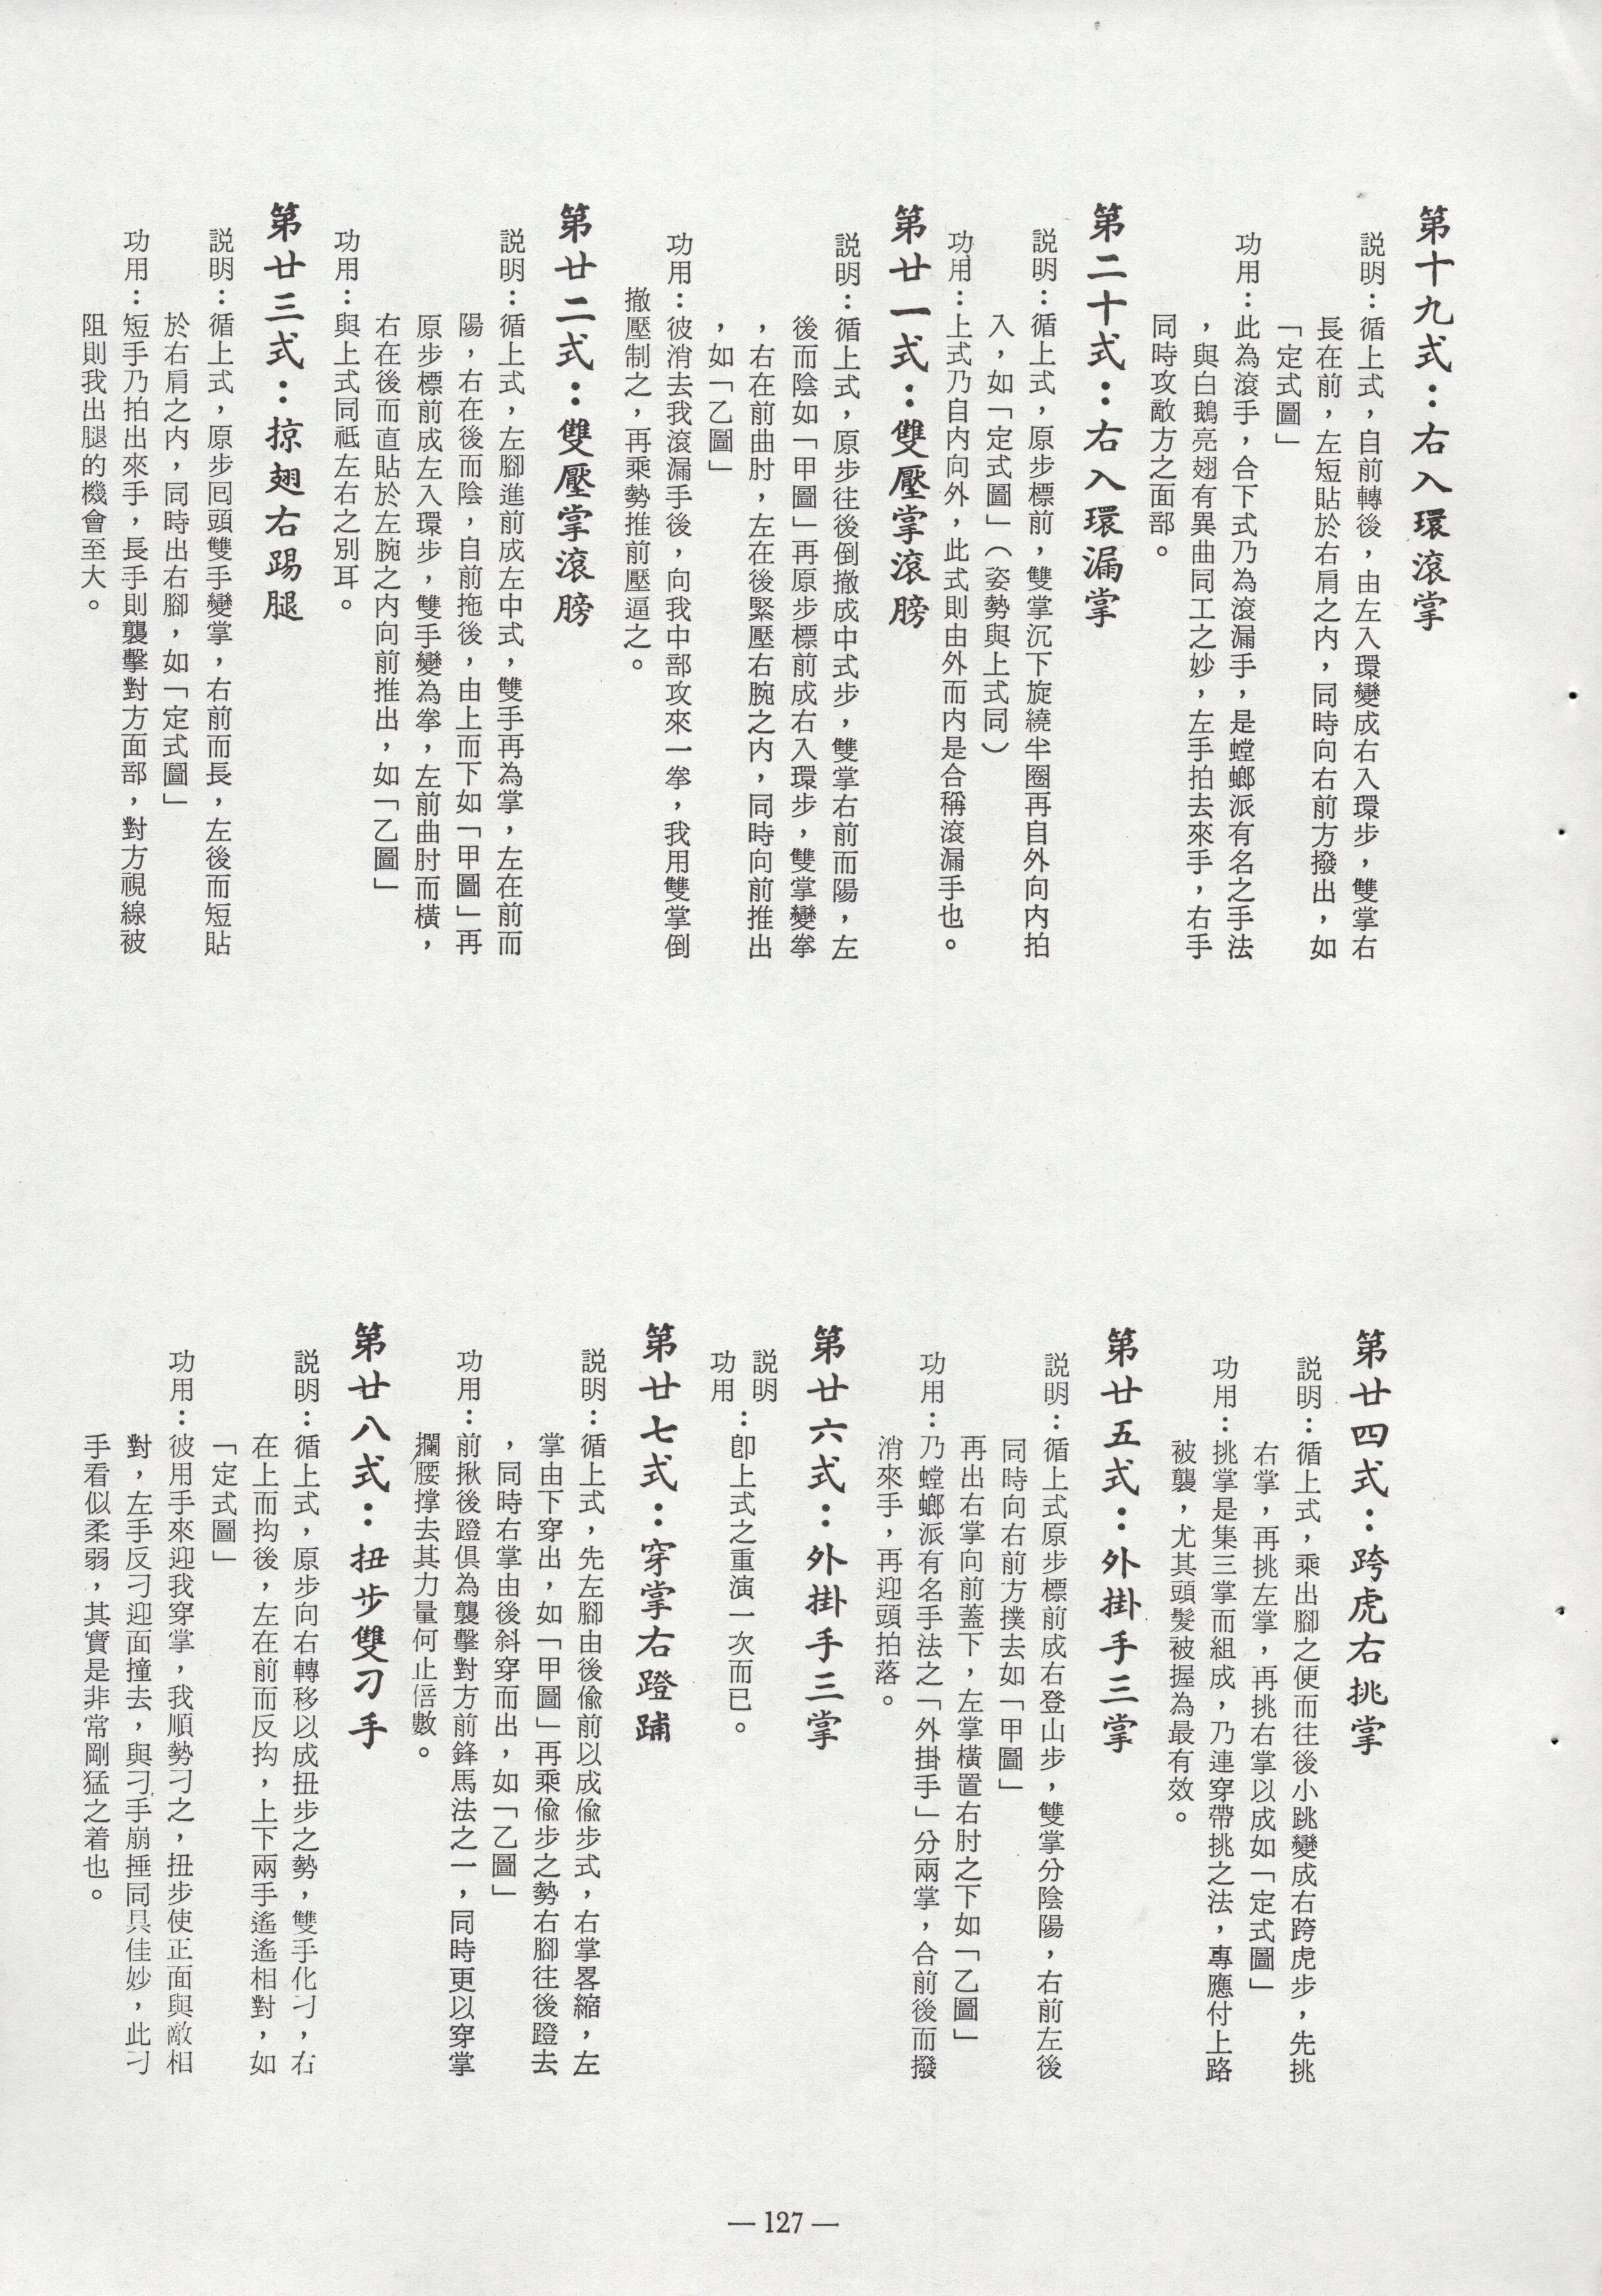 第十九式：右入環滾掌
説明：循上式，自前轉後，由左入環變成右入環步，雙掌右
長在前，左短貼於右肩之内，同時向右前方撥出，如
「定式圖」
功用：此為滾手，合下式乃為滾漏手，是螳螂派有名之手法
，與白鵝亮翅有異曲同工之妙，左手拍去來手，右手
同時攻敵方之面部。
第二十式：右入環漏掌
説明：循上式，原步標前，雙掌沉下旋繞半圈再自外向内拍
入，如「定式圖」（姿勢與上式同）
功用：上式乃自内向外，此式則由外而内是合稱滾漏手也。
第廿一式：雙壓掌滾膀
説明：循上式，原步往後倒撤成中式步，雙掌右前而陽，左
後而陰如「甲圖」再原步標前成右入環步，雙掌變拳
，右在前曲肘，左在後緊壓右腕之内，同時向前推出
，如「乙圖」
功用：彼消去我滾漏手後，向我中部攻來一拳，我用雙掌倒
撤壓制之，再乘勢推前壓逼之。
第廿二式：雙壓掌滾膀
説明：循上式，左腳進前成左中式，雙手再為掌，左在前而
陽，右在後而陰，自前拖後，由上而下如「甲圖」再
原步標前成左入環步，雙手變為拳，左前曲肘而橫，
右在後而直貼於左腕之内向前推出，如「乙圖」
功用：與上式同祗左右之別耳。
第廿三式：掠翅右踢腿
説明：循上式，原步囘頭雙手變掌，右前而長，左後而短貼
於右肩之内，同時出右腳，如「定式圖」
功用：短手乃拍出來手，長手則襲擊對方面部，對方視線被
阻則我出腿的機會至大。
第廿四式：跨虎右挑掌
説明：循上式，乘出腳之便而往後小跳變成右跨虎步，先挑
右掌，再挑左掌，再挑右掌以成如「定式圖」
功用：挑掌是集三掌而組成，乃連穿帶挑之法，專應付上路
被襲，尤其頭髮被握為最有效。
第廿五式：外掛手三掌
説明：循上式原步標前成右登山步，雙掌分陰陽，右前左後
同時向右前方撲去如「甲圖」
再出右掌向前蓋下，左掌橫置右肘之下如「乙圖」
功用：乃螳螂派有名手法之「外掛手」分兩掌，合前後而撥
消來手，再迎頭拍落。
第廿六式：外掛手三掌
説明
功用：卽上式之重演一次而已。
第廿七式：穿掌右蹬踊
説明：循上式，先左腳由後偸前以成偸步式，右掌畧縮，左
掌由下穿出，如「甲圖」再乘偸步之勢右腳往後蹬去
，同時右掌由後斜穿而出，如「乙圖」
功用：前揪後蹬俱為襲擊對方前鋒馬法之一，同時更以穿掌
攔腰撐去其力量何止倍數。
第廿八式：扭步雙刁手
説明：循上式，原步向右轉移以成扭步之勢，雙手化刁，右
在上而抅後，左在前而反抅，上下兩手遙遙相對，如
「定式圖」
功用：彼用手來迎我穿掌，我順勢刁之，扭步使正面與敵相
對，左手反刁迎面撞去，與刁手崩捶同具佳妙，此刁
手看似柔弱，其實是非常剛猛之着也。
— 127 —